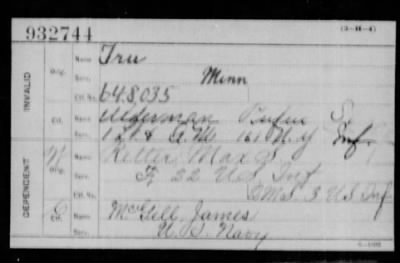 932744
(3-H-4)
INVALID
Orig. Name Tru
Serv. Minn
Ctf. No. 648,035
Ctf. Name Alderman Rufus S.
Serv. A. M. 161 N.Y. Inf.
DEPENDENT
W Orig. Name Retter Max G
Serv. F, 22 U.S. Inf
Ctf. No. 3 U.S. Inf
C Ctf. Name McGill, James
Serv. U. S. Navy